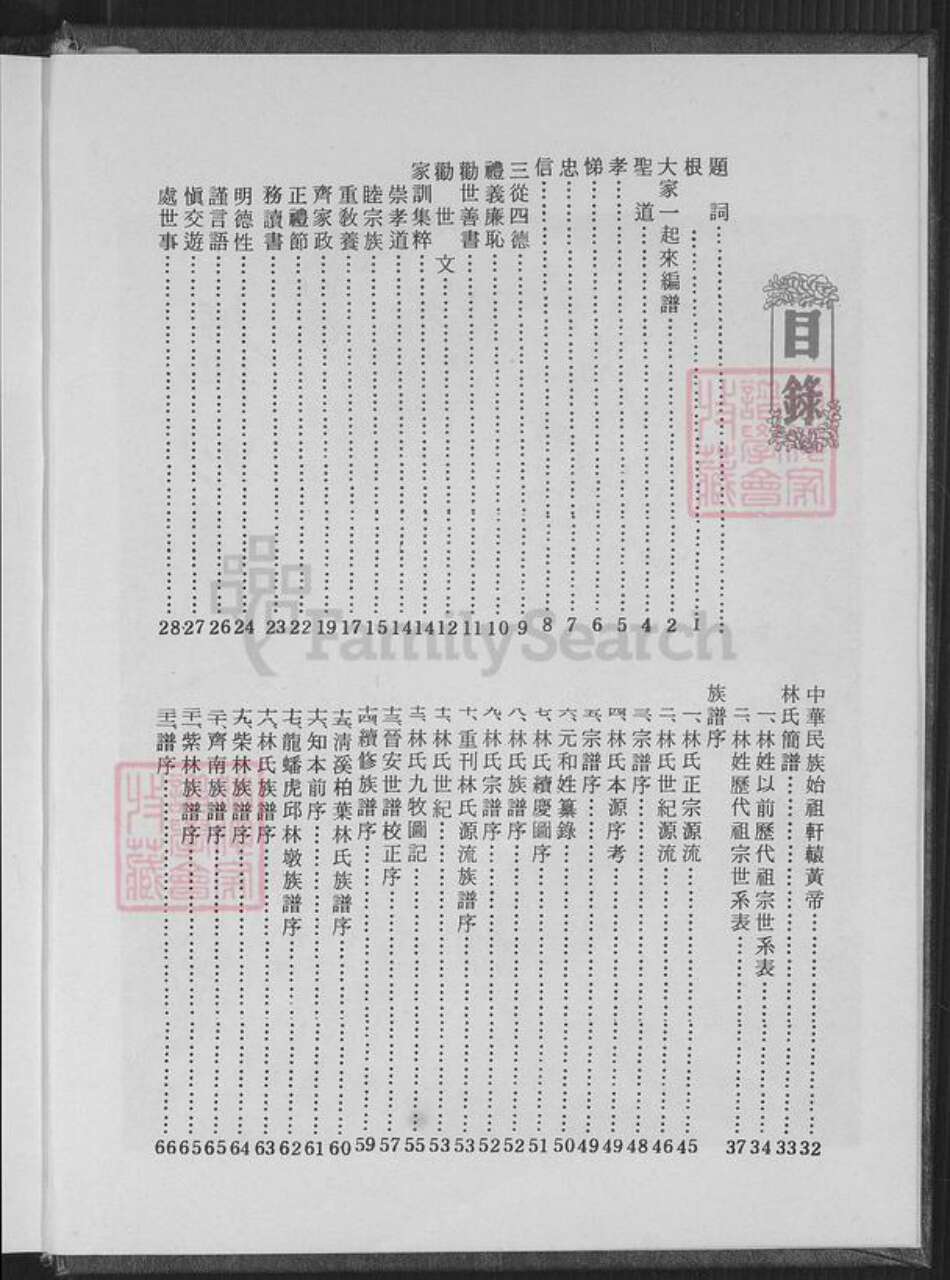 目錄
題詞
根 1
大家一起來編譜 2
聖道 4
孝 5
悌 6
忠 7
信 8
三從四德 9
禮義廉恥 10
勸世善書 11
勸世文 12
家訓集粹 14
崇孝道 14
睦宗族 15
重敎養 17
齊家政 19
正禮節 22
務讀書 23
明德性 24
謹言語 26
愼交遊 27
處世事 28
中華民族始祖軒轅黃帝 32
林氏簡譜 33
一、林姓以前歷代祖宗世系表 34
二、林姓歷代祖宗世系表 37
族譜序
一、林氏正宗源流 45
二、林氏世紀源流 46
三、宗譜序 48
四、林氏本源序考 49
五、宗譜序 49
六、元和姓纂錄 50
七、林氏續慶圖序 51
八、林氏族譜序 52
九、林氏宗譜序 52
十、重刊林氏源流族譜序 53
十一、林氏世紀 53
十二、林氏九牧圖記 55
十三、晉安世譜校正序 57
十四、續修族譜序 59
十五、淸溪柏葉林氏族譜序 60
十六、知本前序 61
十七、龍蟠虎邱林墩族譜序 62
十八、林氏族譜序 63
十九、柴林族譜序 64
二十、齊南族譜序 65
二十一、紫林族譜序 65
二十二、譜序 66
FamilySearch